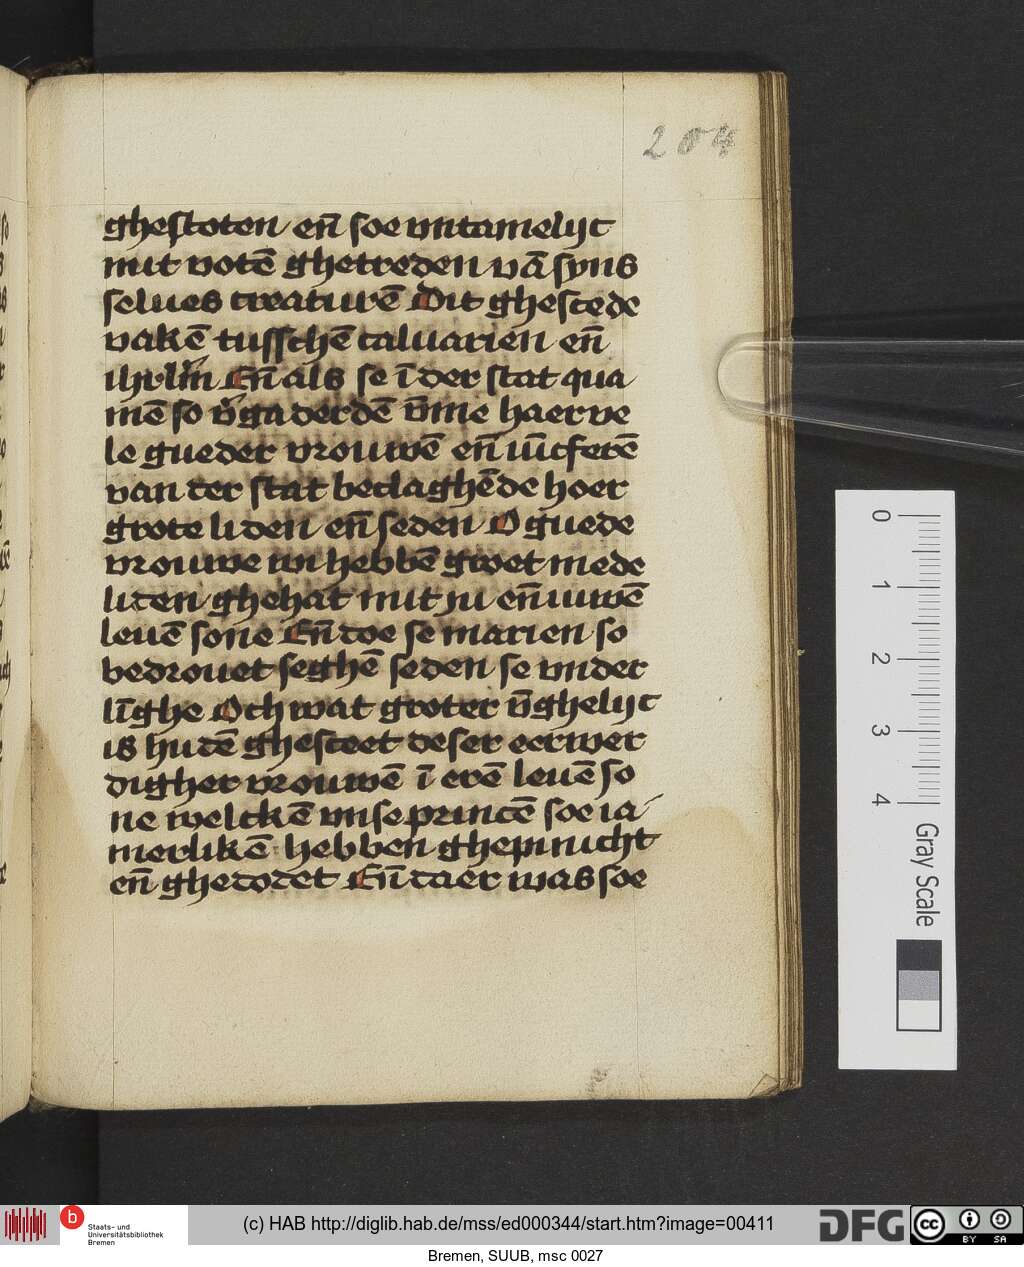 204
ghestoten en̄ soe vntamelijc
mit votē ghetreden vā syns
selues creaturē Dit ghescede
vakē tusschē caluarien en̄
ihrlm̄ En̄ als se ī der stat qua
mē so v̄gaderdē v̄me haer ve
le gueder vrouwē en̄ iūcferē
van der stat beclaghēde hoer
grote liden en̄ seden O guede
vrouwe wi hebbē groet mede
liden ghehat mit ju en̄ iuwē
leuē sone En̄ doe se marien so
bedrouet seghē seden se vnder
līghe Och wat groter v̄ghelijc
is hudē ghesceet deser eerwer
digher vrouwē ī erē leuē so
ne welckē vnse princē soe ia
merlikē hebben ghepinicht
en̄ ghedodet En̄ daer was soe
0
1
2
3
4
Gray Scale
Staats- und
Universitätsbibliothek
Bremen
(c) HAB http://diglib.hab.de/mss/ed000344/start.htm?image=00411
DFG
cc
BY SA
Bremen, SUUB, msc 0027